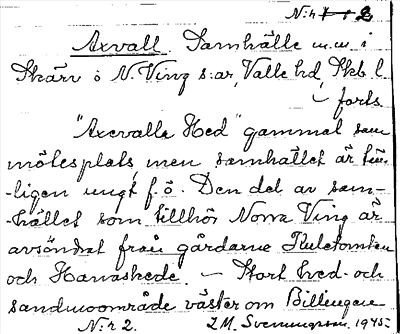 N:r 1-2
Axvall. Samhälle m.m. i
Skärv o N. Ving s:ar, Valle hd, Skb. l.
forts.
"Axevalla Hed" gammal sam
mötesplats, men samhället är täm-
-ligen ungt f.ö. Den del av sam-
-hället som tillhör Norra Ving är
avsöndrat från gårdarne
och Hanaskede. — Stort hed- och
sandmoområde väster om Billingen
N:r 2. Z.M. Svenungsson. 1945.